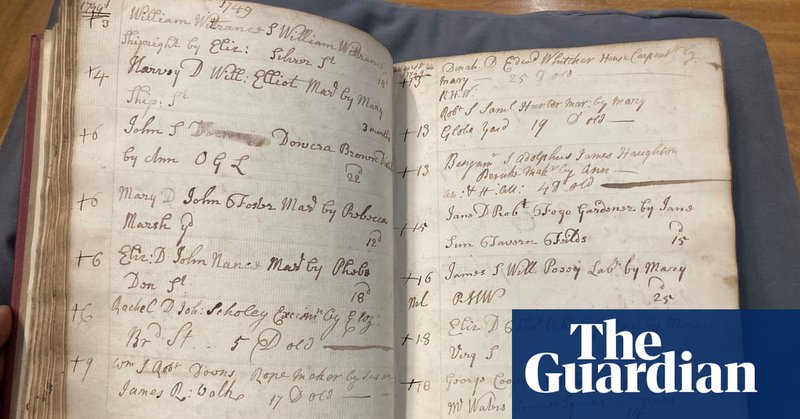 1749
1749
+3
William Wittrance S William Wittrance
Shipright by Eliz: Silver St
+4
Harvey D Will: Elliot Mard by Mary
Ship: St
3 months
+6
John S Dowcra Brown
by Ann O G L
22
+6
Mary D John Foster Mard by Rebecca
Marsh yd
12d
+6
Eliz: D John Nance Mard by Phebe
Don St
18d
+6
Rachel D Joh: Scholey by Eliz:
Brd St 5 D old
+9
Wm S Robt Downs Rope maker by Susan
James R: Walk 17 D old
August
1749
+13
Dinah D Edwd Whitcher House Carpentr by
Mary 25 D old
R.H.W.
+13
Robt S Saml Hunter Mar: by Mary
Globe Yard 19 D old
+13
Benjamn S Adolphus James Haughton
by Ann
48 D old
+15
Jane D Robt Fogo Gardener by Jane
Sun Tavern Fields
D
15
+16
James S Will Posey Labr by Mary
RHW
D
25
+18
Eliz D
Virg S
+18
George
Mr
The
Guardian